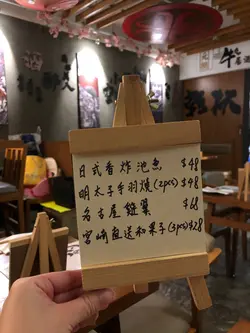 日式香炸池魚 $48
明太子手羽燒(2pcs) $48
名古屋雞翼 $68
宮崎直送和菓子(3pcs) $28